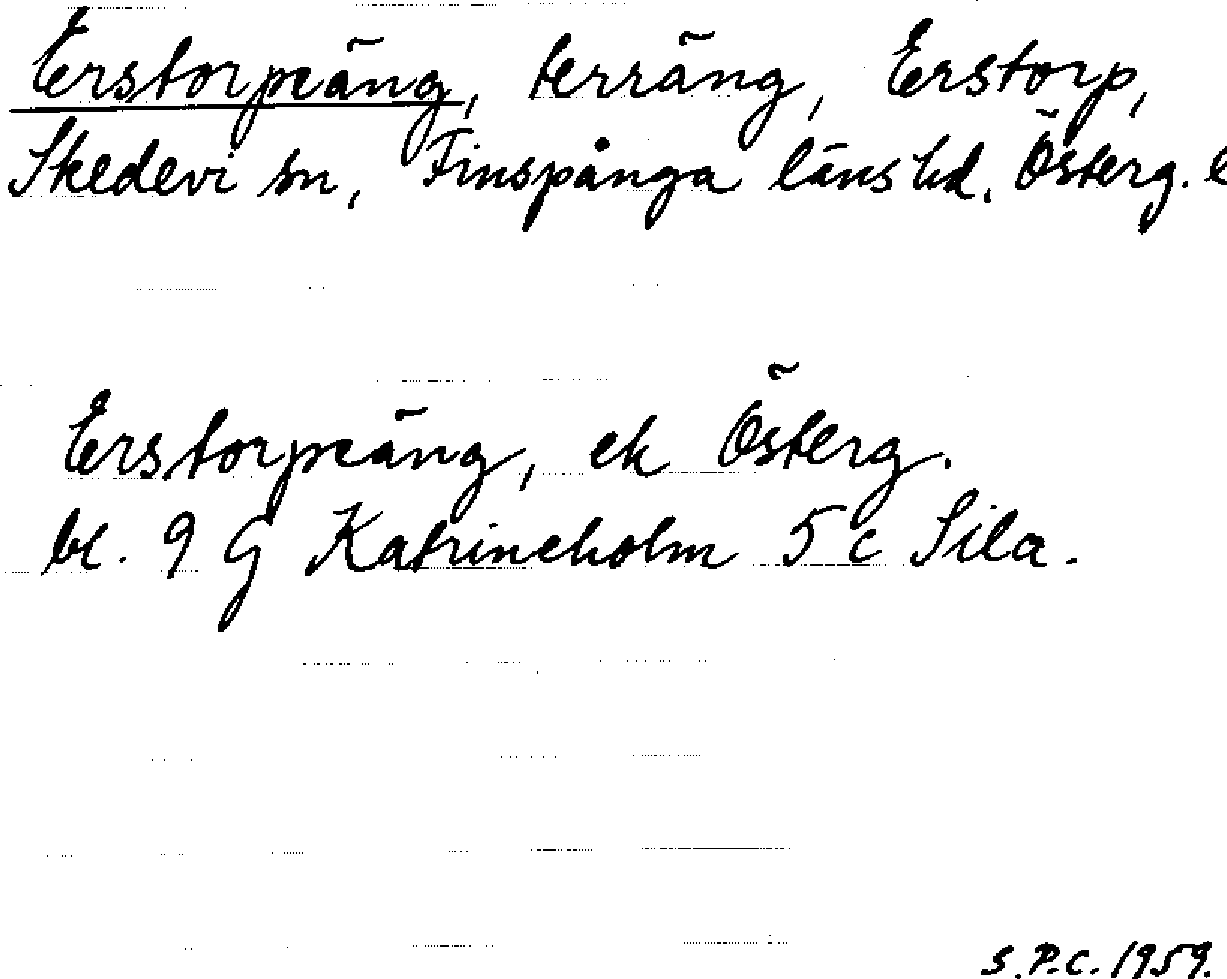 Erstorpeäng, terräng, Erstorp,
Skedevi sn, Finspånga läns hd, Österg. l
Erstorpeäng, ek Österg.
bl. 9 G Katrineholm 5 c Sila.
S.P.C. 1959.